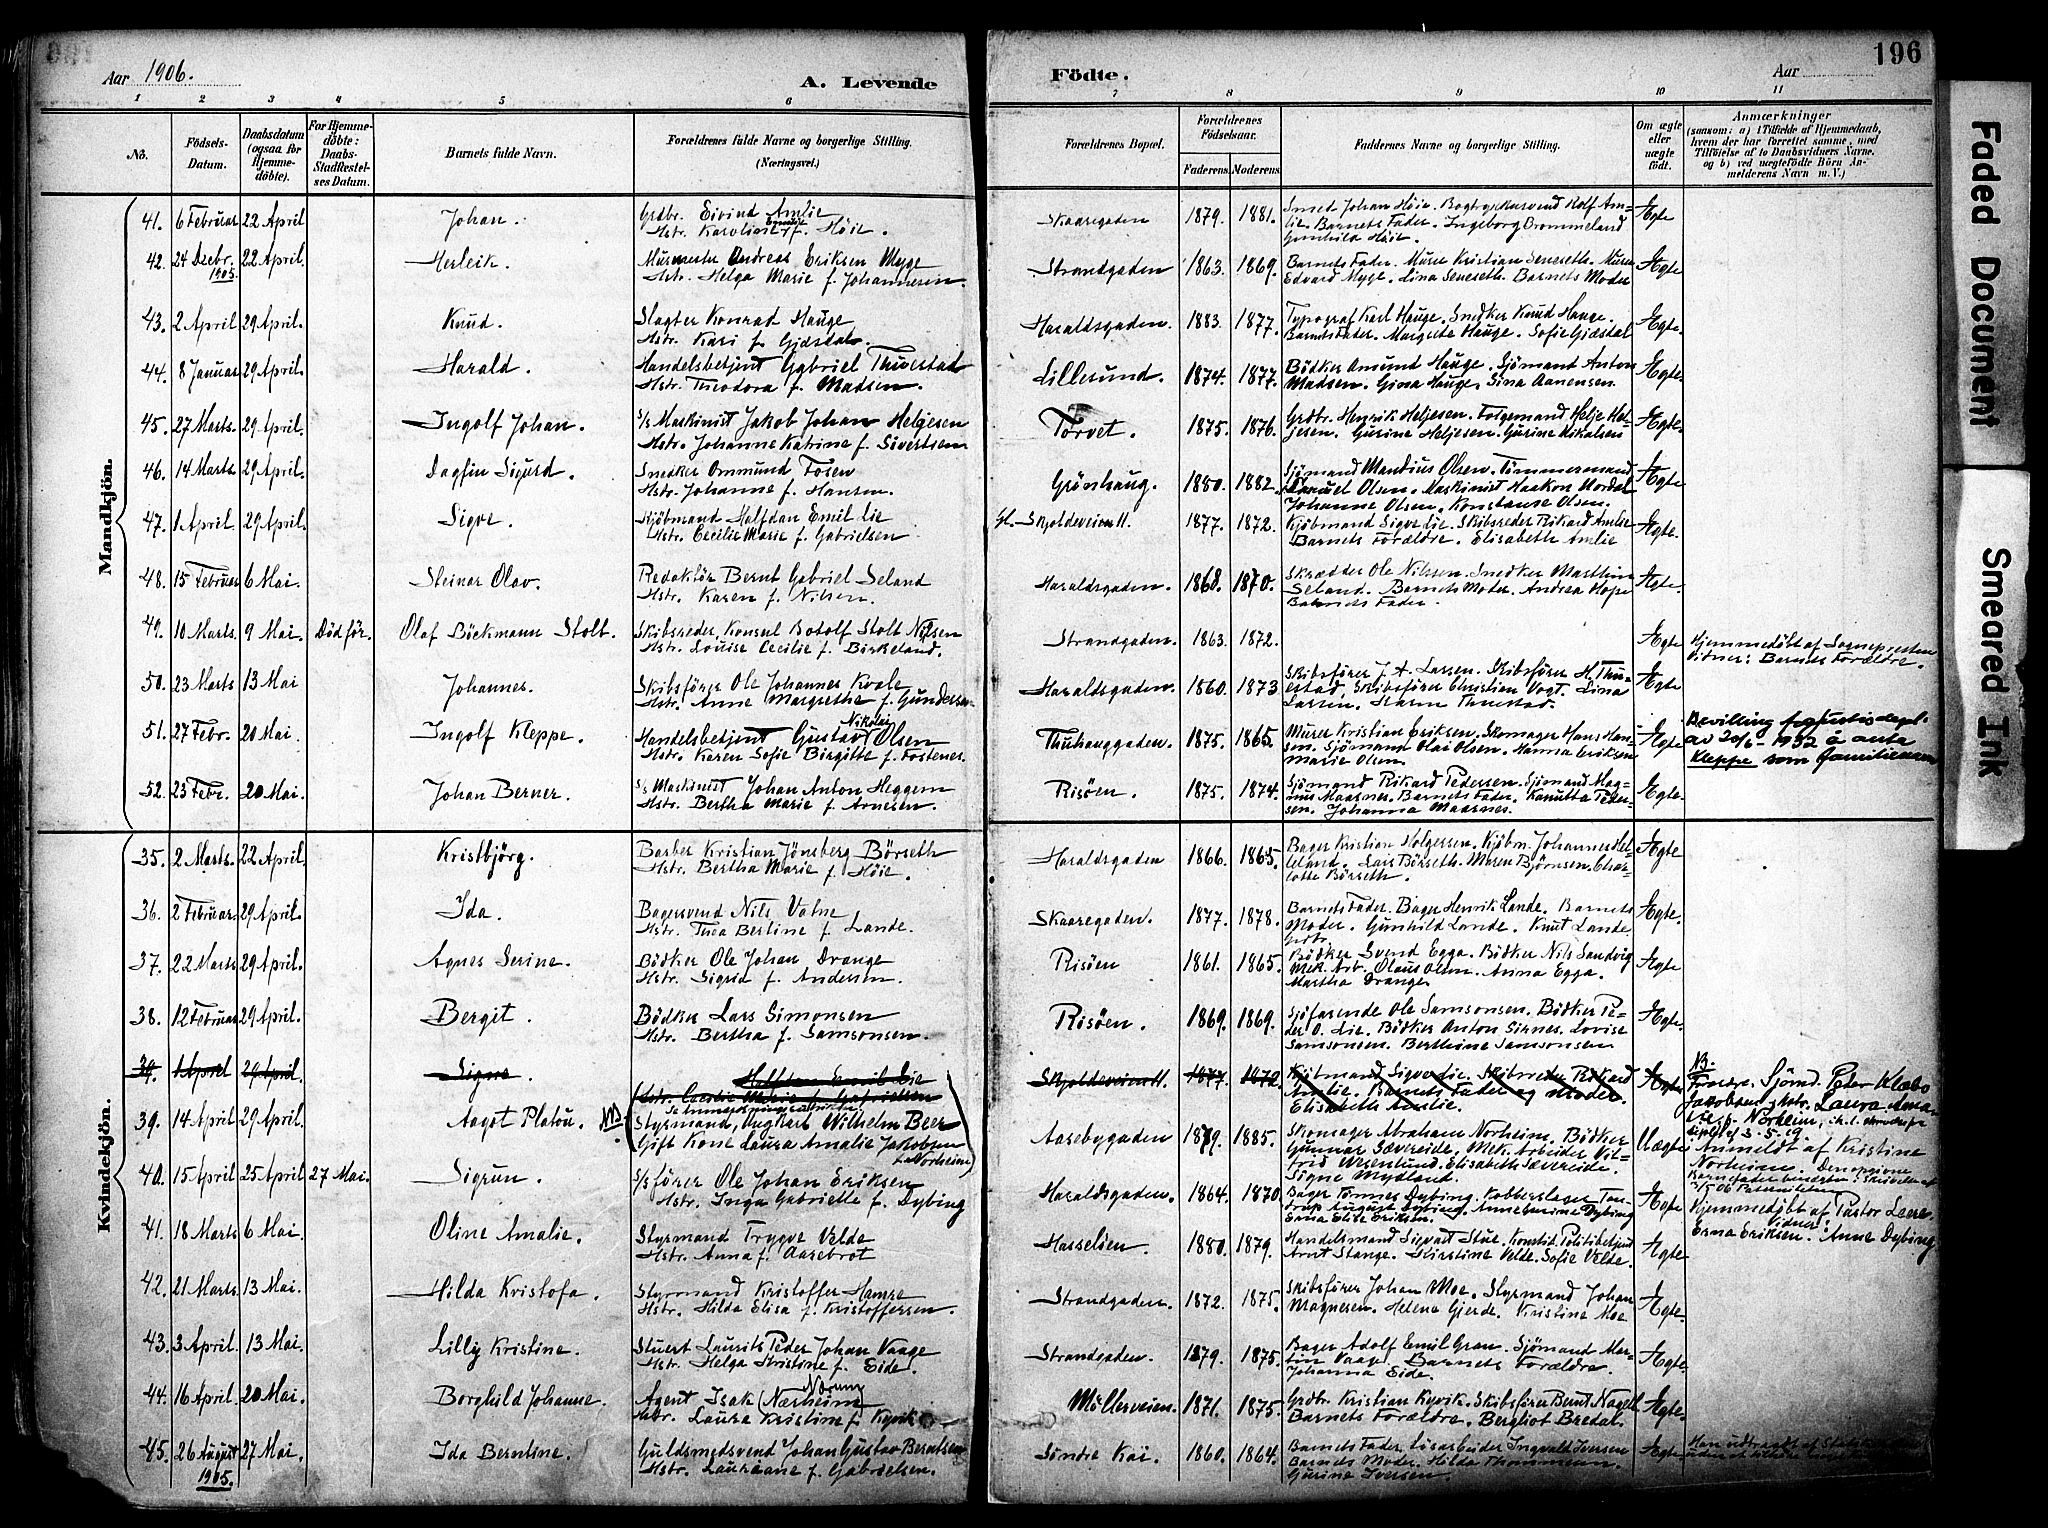 Aar 1906.
A. Levende
Födte.
Aar
196
1 2 3 4 5 6 7 8 9 10 11
No.
Födsels-Datum.
Daabsdatum (ogsaa for Hjemme-döbte).
For Hjemme-döbte: Daabs-Stadfæstel-ses Datum.
Barnets fulde Navn.
Forældrenes fulde Navne og borgerlige Stilling. (Næringsvei.)
Forældrenes Bopæl.
Forældrenes Födselsaar.
Faderens. Moderens.
Faddernes Navne og borgerlige Stilling.
Om ægte eller uægte födt.
Anmærkninger (saasom: a) i Tilfælde af Hjemmedaab, hvem der har forrettet samme, med Tilföielse af to Daabsvidners Navne, og b) ved uægtefödte Börn An-melderens Navn m. V.)
Mandkjön.
41. 6 Februar 22 April Johan. Grdbr. Eivind Amlie
Hstr. Karoline f. Höie. Skaaregaden 1879. 1881. Smed Johan Höie. Rolf Am-
lie. Barnets Fader. Ingeborg Brommeland
Gunhild Höie. Ægte
42. 24 Dzebr. 1905. 22 April. Herleik. Murmester Andreas Eriksen Myge
Hstr. Helga Marie f. Johannesen. Strandgaden. 1863. 1869. Barnets Fader. Murer Kristian Seneseth. Murer
Edvard Myge. Lina Seneseth. Barnets Moder Ægte
43. 2 April 29 April. Knud. Slagter Konrad Hauge
Hstr. Kari f. Gjæsdal. Haraldsgaden. 1883. 1877. Typograf Karl Hauge. Snedker Knud Hauge.
Barnets Fader. Margrete Hauge. Sofie Gjæsdal Ægte.
44. 8 Januar 29 April. Harald. Handelsbetjent Gabriel Thuestad
Hstr. Theodora f. Madsen. Lillesund. 1874. 1877. Bödker Amund Hauge. Sjömand Anton
Madsen. Gina Hauge. Sina Aanensen. Ægte.
45. 27 Marts. 29 April. Ingolf Johan. s/s Maskinist Jakob Johan Helgesen
Hstr. Johanne Katrine f. Sivertsen Torvet. 1875. 1876. Grdbr. Henrik Heljesen. Helje Hel-
jesen. Gurine Heljesen. Gurine Mikalsen Ægte.
46. 14 Marts. 29 April. Dagfin Sigurd. Snedker Ommund Fosen
Hstr. Johanne f. Hansen. Grönhaug. 1880. 1882. Sjömand Mandius Olsen. Tömmermand
Samuel Olsen. Maskinist Haakon Nordal
Johanne Olsen. Konstanse Olsen. Ægte
47. 1 April. 29 April. Sigve. Kjöbmand Halfdan Emil Lie
Hstr. Cecilie Marie f. Gabrielsen Gl. Skjoldeveien 11. 1877. 1872. Kjöbmand Sigve Lie. Skibsreder Rikard Amlie
Barnets Forældre. Elisabeth Amlie Ægte.
48. 15 Februar 6 Mai. Steinar Olav. Redaktör Bernt Gabriel Seland
Hstr. Karen f. Nilsen. Haraldsgaden. 1868. 1870. Skrædder Ole Nilssen. Snedker Matthias
Seland. Barnets Moder. Andrea Hope
Barnets Fader. Ægte.
49. 10 Marts. 9 Mai. Död för. Olaf Böckmann Stolt. Skibsreder, Konsul Botolf Stolt Nilsen
Hstr. Louise Cecilie f. Birkeland. Strandgaden. 1863. 1872. Ægte Hjemmedöbt af Sognepresten
Vidner: Barnets Forældre.
50. 23 Marts 13 Mai Johannes. Skibsförer Ole Johannes Kvale
Hstr. Anne Margrethe f. Gundersen Haraldsgaden. 1860. 1873 Skibsförer J. A. Larsen. Skibsförer H. Thu-
estad. Skibsförer Christian Vogt. Lina
Larsen. Karen Thuestad. Ægte
51. 27 Febr. 20 Mai. Ingolf Kleppe. Handelsbetjent Gustav Nikolai Olsen
Hstr. Karen Sofie Birgitte f. Fostenes. Thuhauggaden. 1875. 1865. Murer Kristian Eriksen. Skomager Hans Han-
sen. Sjömann Olai Olsen. Hanna Eriksen
Marie Olsen. Ægte Bevilling fra Justisdept.
av 20/6 - 1932 å anta
Kleppe som familienavn
52. 23 Febr. 20 Mai. Johan Berner. s/s Maskinist Johan Anton Heggem
Hstr. Bertha Marie f. Arnesen. Risöen. 1875. 1874. Sjömand Rikard Pedersen. Sjömand Mag-
nus Maasnes. Barnets Fader. Kanutta Peder-
sen. Johanna Maasnes. Ægte.
Kvindekjön.
35. 2 Marts. 22 April. Kristbjörg. Barber Kristian Jönsberg Börseth
Hstr. Bertha Marie f. Höie. Haraldsgaden 1866. 1865. Bager Kristian Holgersen. Kjöbm. Johannes Hel-
leland. Lars Börseth. Maren Bjørnsen. Char-
lotte Börseth. Ægte
36. 2 Februar. 29 April. Ida. Bagersvend Nils Valne
Hstr. Thea Bertine f. Lande. Skaaregaden. 1877. 1878. Barnets Fader. Bager Henrik Lande. Barnets
Moder. Gunhild Lande. Knut Lande.
Grdbr. Ægte.
37. 22 Marts 29 April. Agnes Serine. Bödker Ole Johan Drange
Hstr. Sigrid f. Andersen. Risöen 1861. 1865. Bödker Svend Egga. Bödker Nils Sandvig
Mek. Arb. Olaus Olsen. Anna Egga.
Martha Drange. Ægte
38. 12 Februar 29 April. Bergit. Bödker Lars Simonsen
Hstr. Bertha f. Samsonsen. Risöen. 1869. 1869. Sjöfarende Ole Samsonsen. Bödker Pe-
der O. Lie. Bödker Anton Sirnes. Lovise
Samsonsen. Berthine Samsonsen Ægte.
39. 1 April 29 April. Signe. Halfdan Emil Lie
Hstr. Cecilie Marie f. Gabrielsen Skjoldeveien 11. 1877. 1872. Kjöbmand Sigve Lie. Skibsreder Rikard
Amlie. Barnets Fader og Moder.
Elisabeth Amlie. Ægte
39. 14 April 29 April. Aagot Platou. NB. Styrmand, Ungkarl Wilhelm Beer
Gift Kone Laura Amalie Jakobsen
f. Norheim Aasebygaden 1879. 1885. Skomager Abraham Norheim. Bödker
Gunnar Sævereide. Mek. Arbeider Vil-
Elisabeth Sævereide.
Signe Mydland. Uægte NB.
Forældre. Sjömd. Peter Klæbo
Jakobsen, Hstr. Laura Ama-
lie f. Norheim,
Anmeldt af Kristine
Norheim.
40. 15 April 25 April 27 Mai. Sigrun. s/s förer Ole Johan Eriksen
Hstr. Inga Gabrielle f. Dybing Haraldsgaden. 1864. 1870. Bager Tönnes Dybing. Kobberslager
August Dybing. Anne Dybing
Erna Elise Eriksen. Ægte Hjemmedöbt af Pastor
Vidner:
Erna Eriksen. Anne Dybing
41. 18 Marts 6 Mai. Oline Amalie. Styrmand Trygve Velde
Hstr. Anna f. Aasebrot Hasseløen. 1880. 1879. Handelsmand Sigvart Stue. Konstit. Politibetjent
Arnt Stange. Kirstine Velde. Sofie Velde. Ægte
42. 21 Marts. 13 Mai. Hilda Kristofa. Styrmand Kristoffer Hamre
Hstr. Hilda Elisa f. Kristoffersen. Strandgaden. 1872. 1875. Skibsförer Johan Moe. Styrmand Johan
Magnesen. Helena Gjerde. Kristine Moe Ægte.
43. 3 April. 13 Mai. Lilly Kristine. Stuert Laurits Peder Johan Vaage
Hstr. Helga Kristine f. Eide. Strandgaden. 1879. 1875. Bager Adolf Emil Gran. Sjömand Mar-
tin Vaage. Barnets Forældre.
Johanna Eide. Ægte.
44. 16 April. 20 Mai. Borghild Johanne. Agent Isak (Nærheim Norum
Hstr. Laura Kristine f. Kyvik Möllerveien. 1871. 1875. Grdbr. Kristian Kyvik. Skibsförer Bernt Nagell
Barnets Forældre. Bergliot Bredal. Ægte.
45. 26 August 1905. 27 Mai. Ida Berntine. Guldsmedsvend Johan Gustav Berntsen
Hstr. Laureane f. Gabrielsen. Söndre Kai. 1860. 1864. Barnets Fader. Lösarbeider Ingvald Iversen
Barnets Moder. Hilda Thommesen.
Gurine Iversen. Ægte Han udtraadt af Statskirken
Faded Document
Smeared Ink